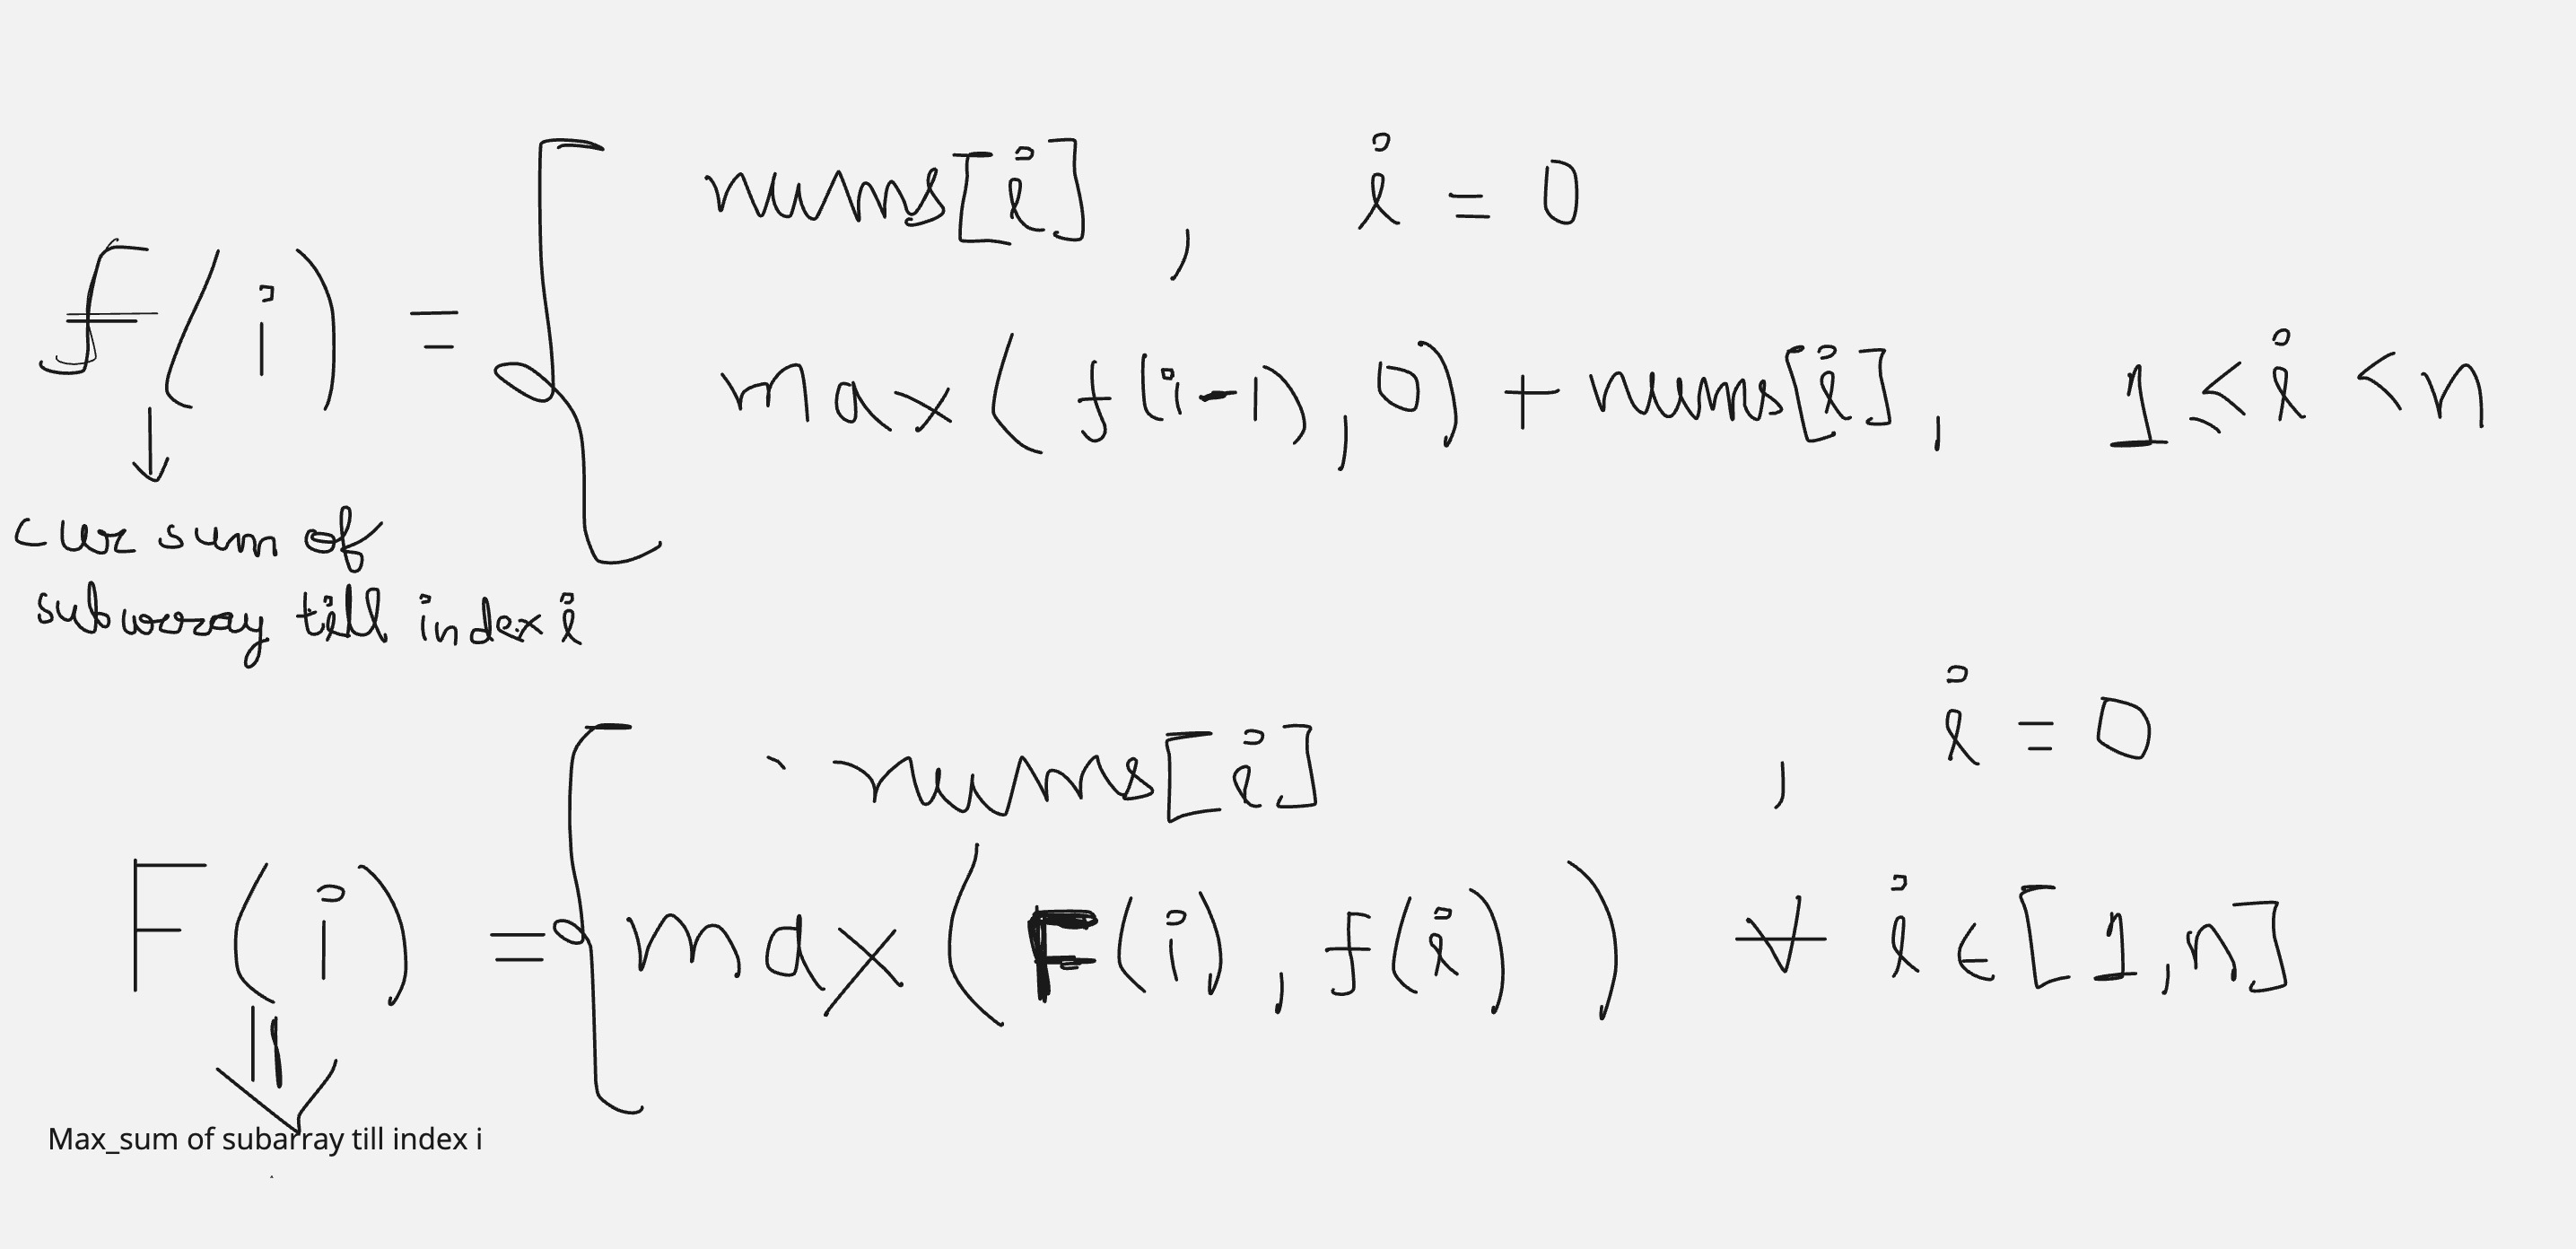 nums[i] , i = 0
f(i) =
max(f(i-1), 0) + nums[i], 1 ≤ i < n
cur sum of
subarray till index i
nums[i] , i = 0
F(i) = max(F(i), f(i)) ∀ i ∈ [1,n]
Max_sum of subarray till index i